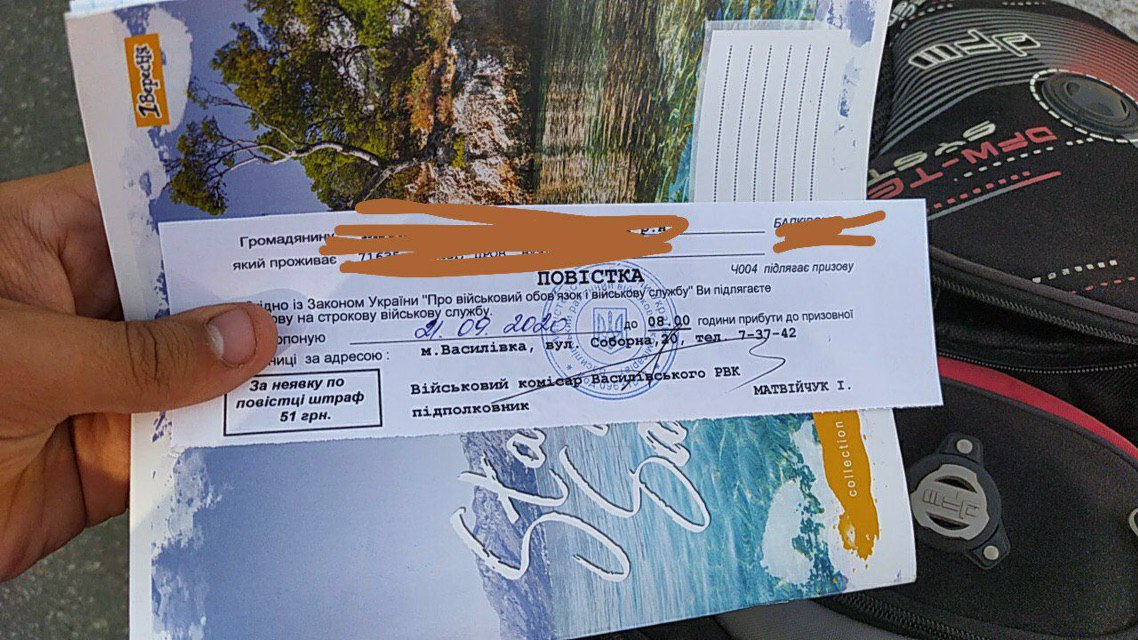 1 Вересня
Громадянину
який проживає
ПОВІСТКА
Ч004 підлягає призову
із Законом України "Про військовий обов'язок і військову службу" Ви підлягаєте
на строкову військову службу.
21.09.2020 до 08.00 години прибути до призовної
за адресою : м.Василівка, вул. Соборна,20, тел. 7-37-42
За неявку по
повістці штраф
51 грн.
Військовий комісар Василівського РВК
підполковник
МАТВІЙЧУК І.
collection
DFW